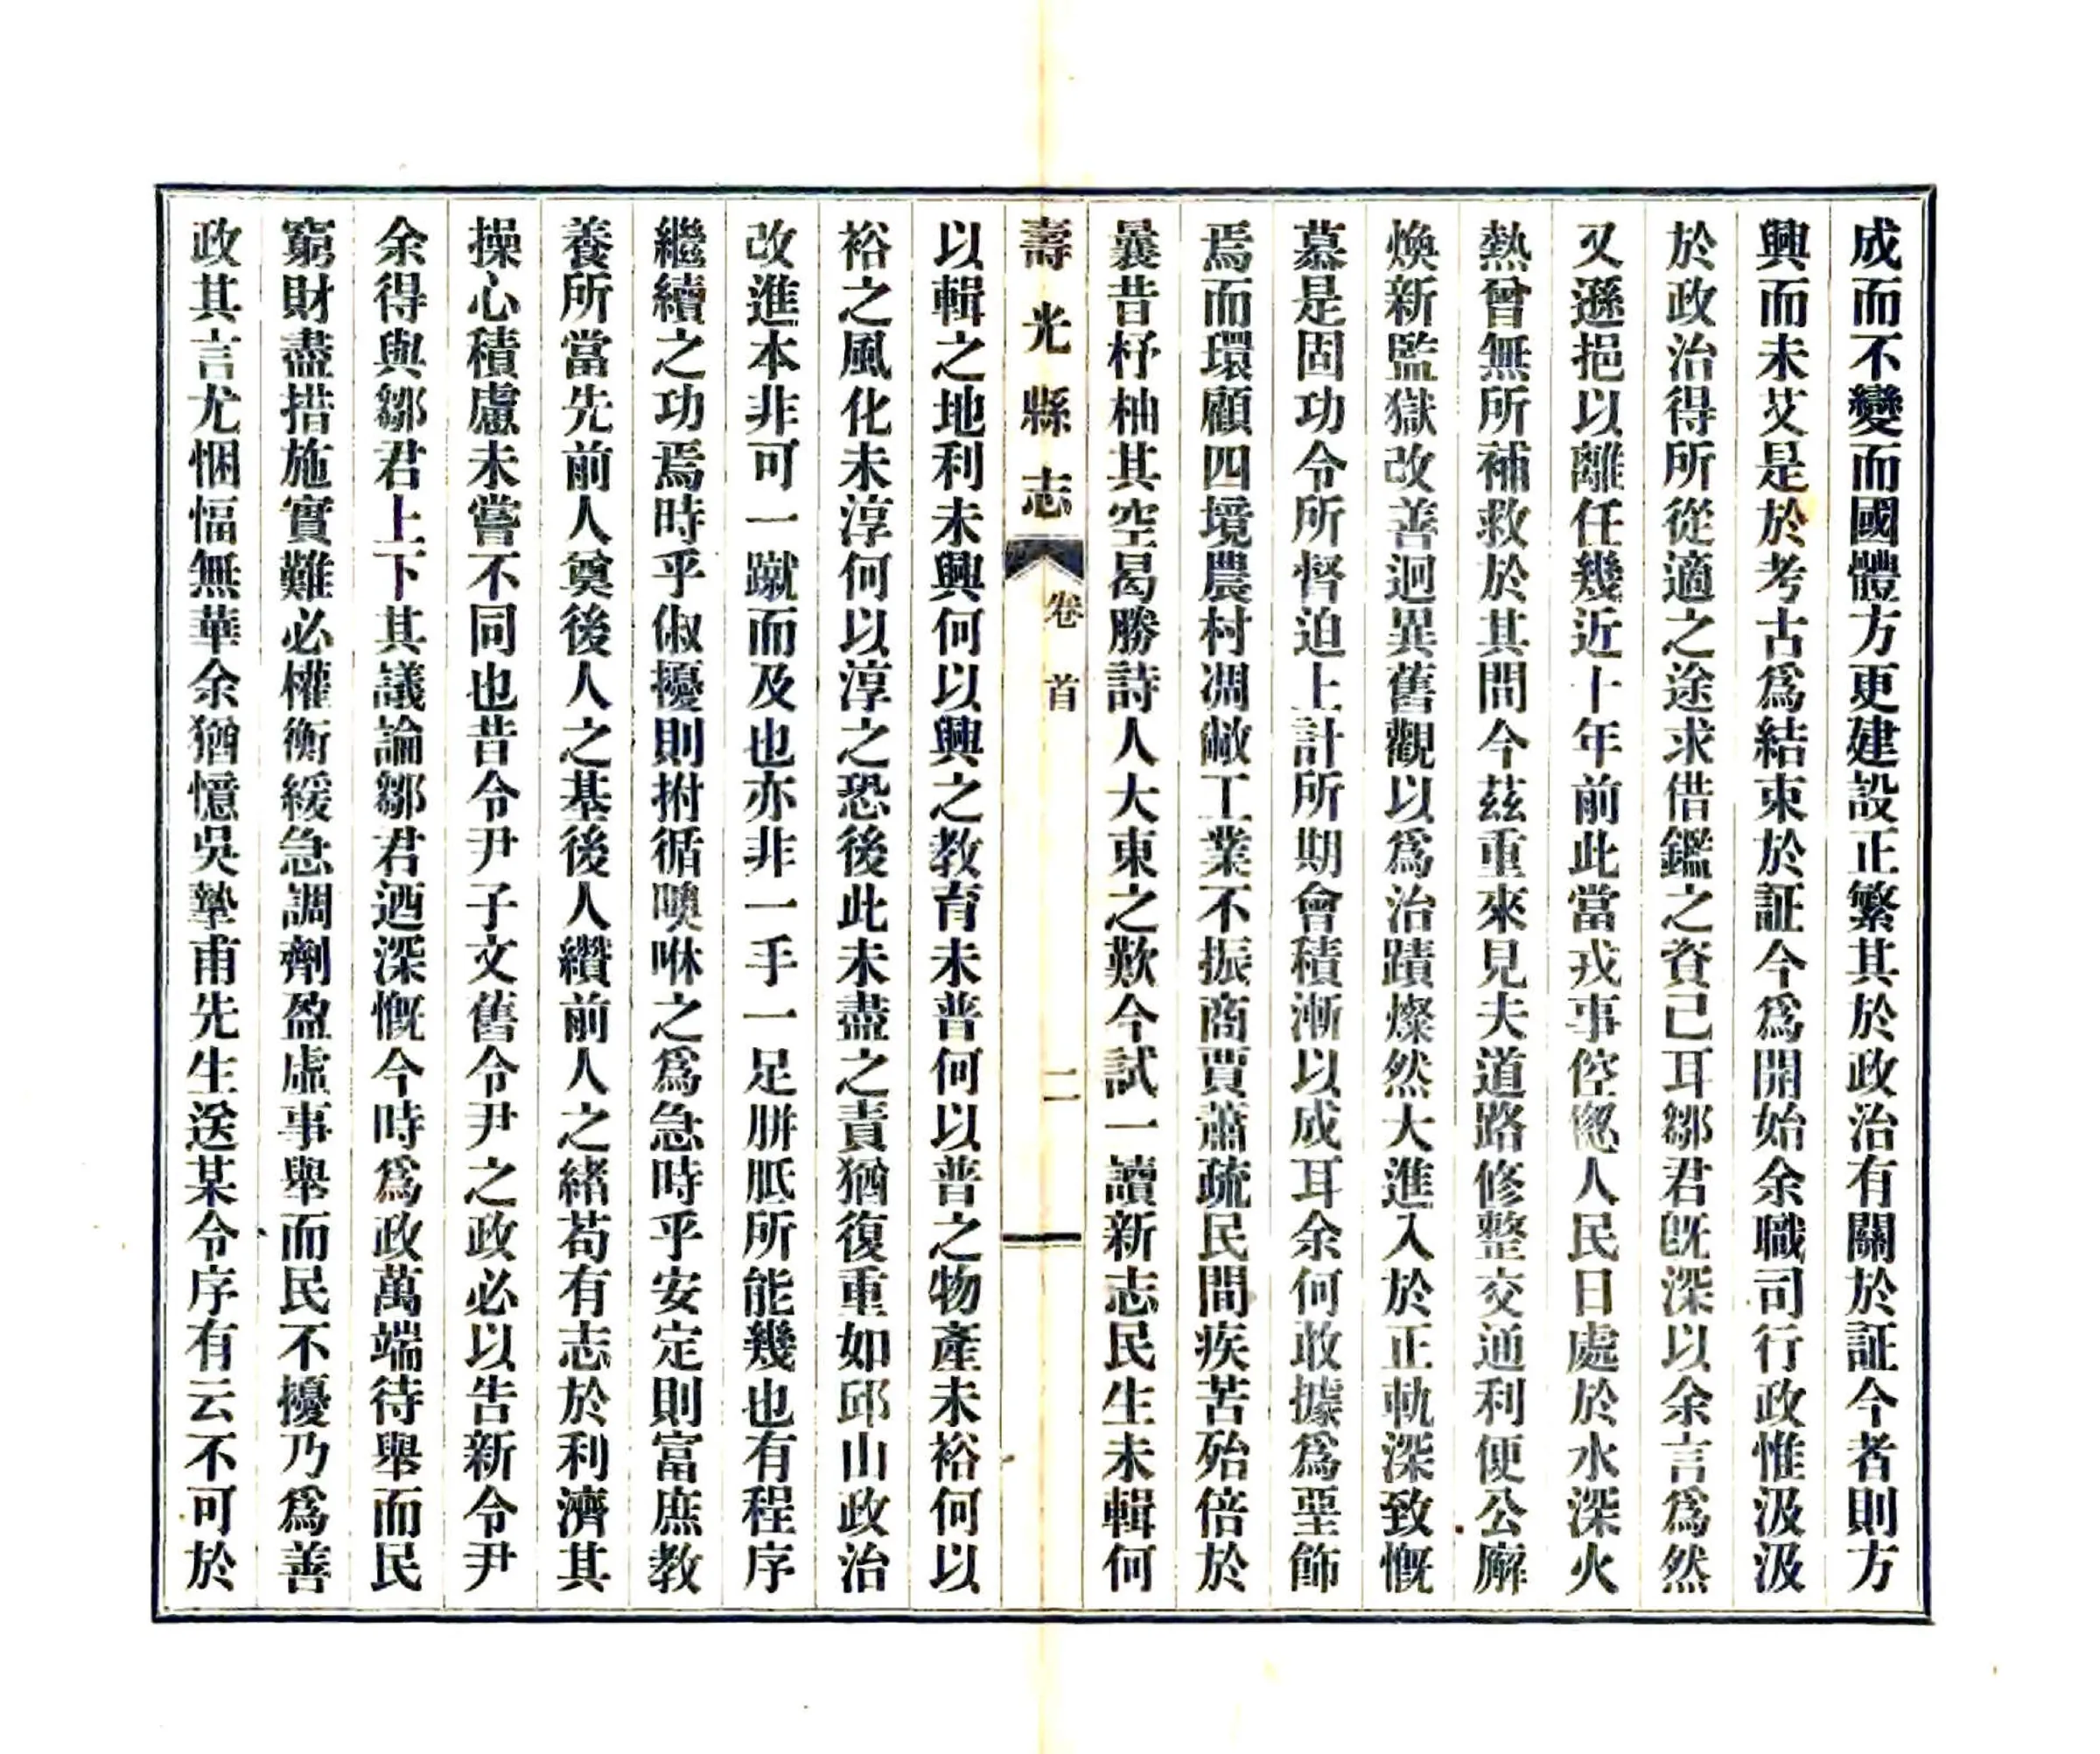 成而不變而國體方更建設正繁其於政治有關於証今者則方
興而未艾是於考古爲結束於証今爲開始余職司行政惟汲汲
於政治得所從適之途求借鑑之資己耳鄒君既深以余言爲然
又遜挹以離任幾近十年前此當戎事倥偬人民日處於水深火
熱曾無所補救於其間今茲重來見夫道路修整交通利便公廨
煥新監獄改善迥異舊觀以爲治蹟燦然大進入於正軌深致慨
慕是固功令所督迫上計所期會積漸以成耳余何敢據爲堊飾
焉而環顧四境農村凋敝工業不振商賈蕭疏民間疾苦殆倍於
曩昔杼柚其空曷勝詩人大東之歎今試一讀新志民生未輯何
壽光縣志 卷首 二
以輯之地利未興何以興之教育未普何以普之物產未裕何以
裕之風化未淳何以淳之恐後此未盡之責猶復重如邱山政治
改進本非可一蹴而及也亦非一手一足胼胝所能幾也有程序
繼續之功焉時乎俶擾則拊循噢咻之爲急時乎安定則富庶教
養所當先前人奠後人之基後人纘前人之緒苟有志於利濟其
操心積慮未嘗不同也昔令尹子文舊令尹之政必以告新令尹
余得與鄒君上下其議論鄒君迺深慨今時爲政萬端待舉而民
窮財盡措施實難必權衡緩急調劑盈虛事舉而民不擾乃爲善
政其言尤悃愊無華余猶憶吳摯甫先生送某令序有云不可於